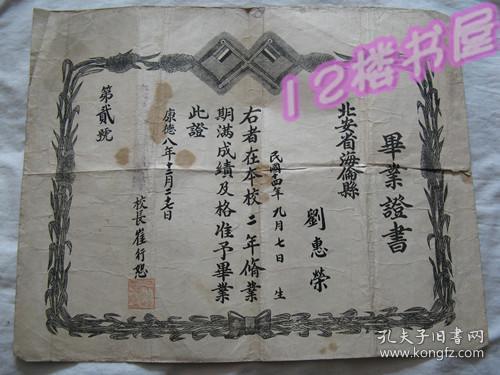 12楼书屋
畢業證書
北安省海倫縣
劉惠榮
民國十四年九月七日生
右者在本校二年脩業
期滿成績及格准予畢業
此證
康德八年十二月二十七日
校長崔行恕
第貳號
孔夫子旧书网
www.kongfz.com